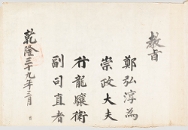 教旨
鄭弘淳為
崇政大夫
行龍驤衛
副司直者
乾隆三十九年三月